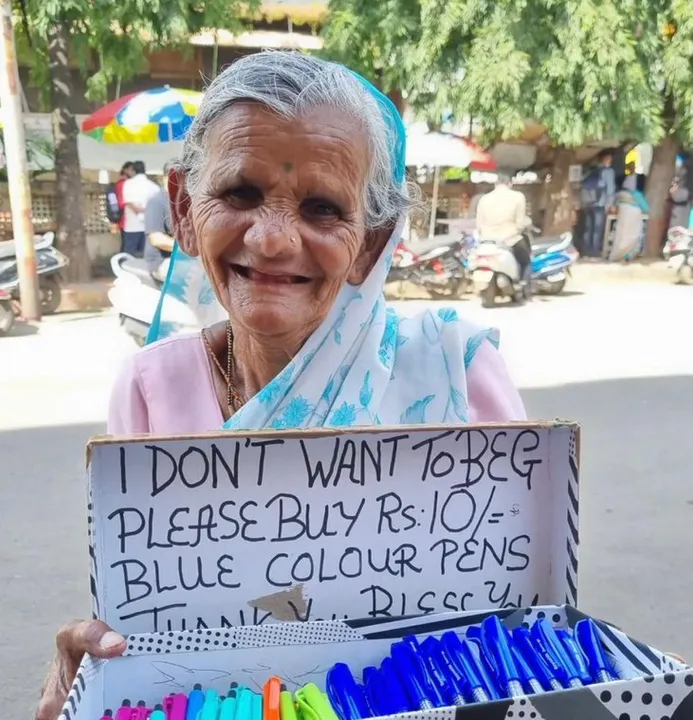 I DON'T WANT TO BEG
PLEASE BUY Rs. 10/=
BLUE COLOUR PENS
THANK YOU BLESS YOU